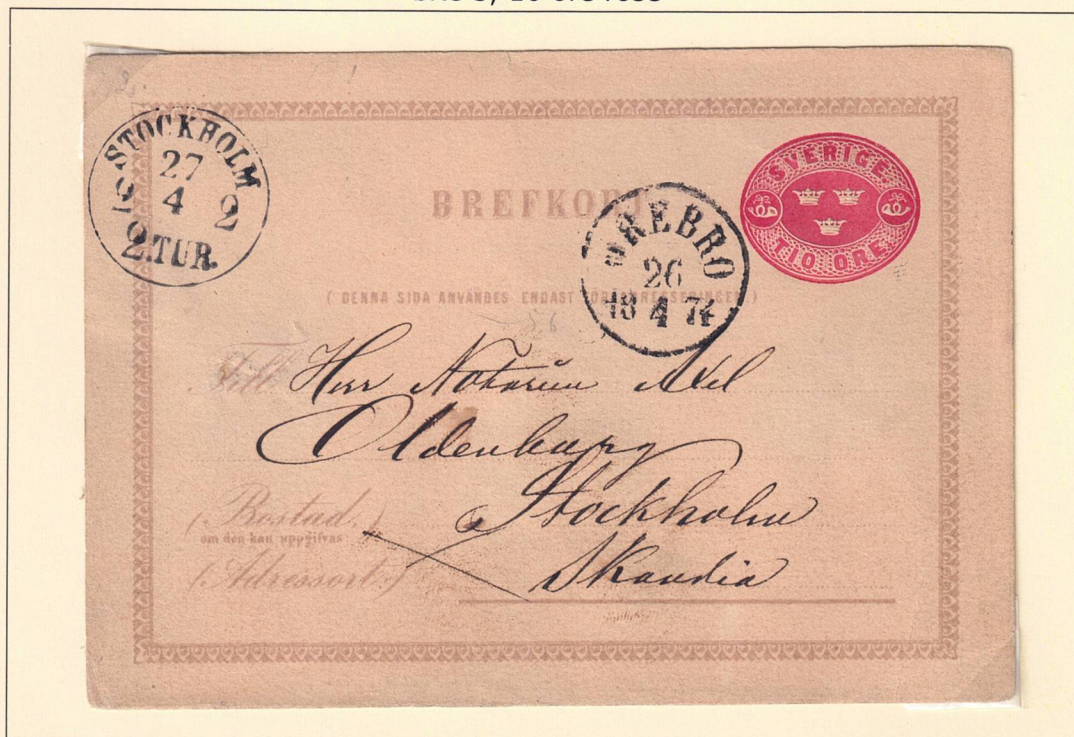 STOCKHOLM
27
4
2 2
2.TUR.
BREFKORT
SVERIGE
TIO ÖRE
ÖREBRO
26
18 4 74
( DENNA SIDA ANVÄNDES ENDAST FÖR ADRESSERINGEN. )
Till
Herr Notarien Axel
Oldenburg
Stockholm
Skandia
(Bostad.)
om den kan uppgifvas
(Adressort.)